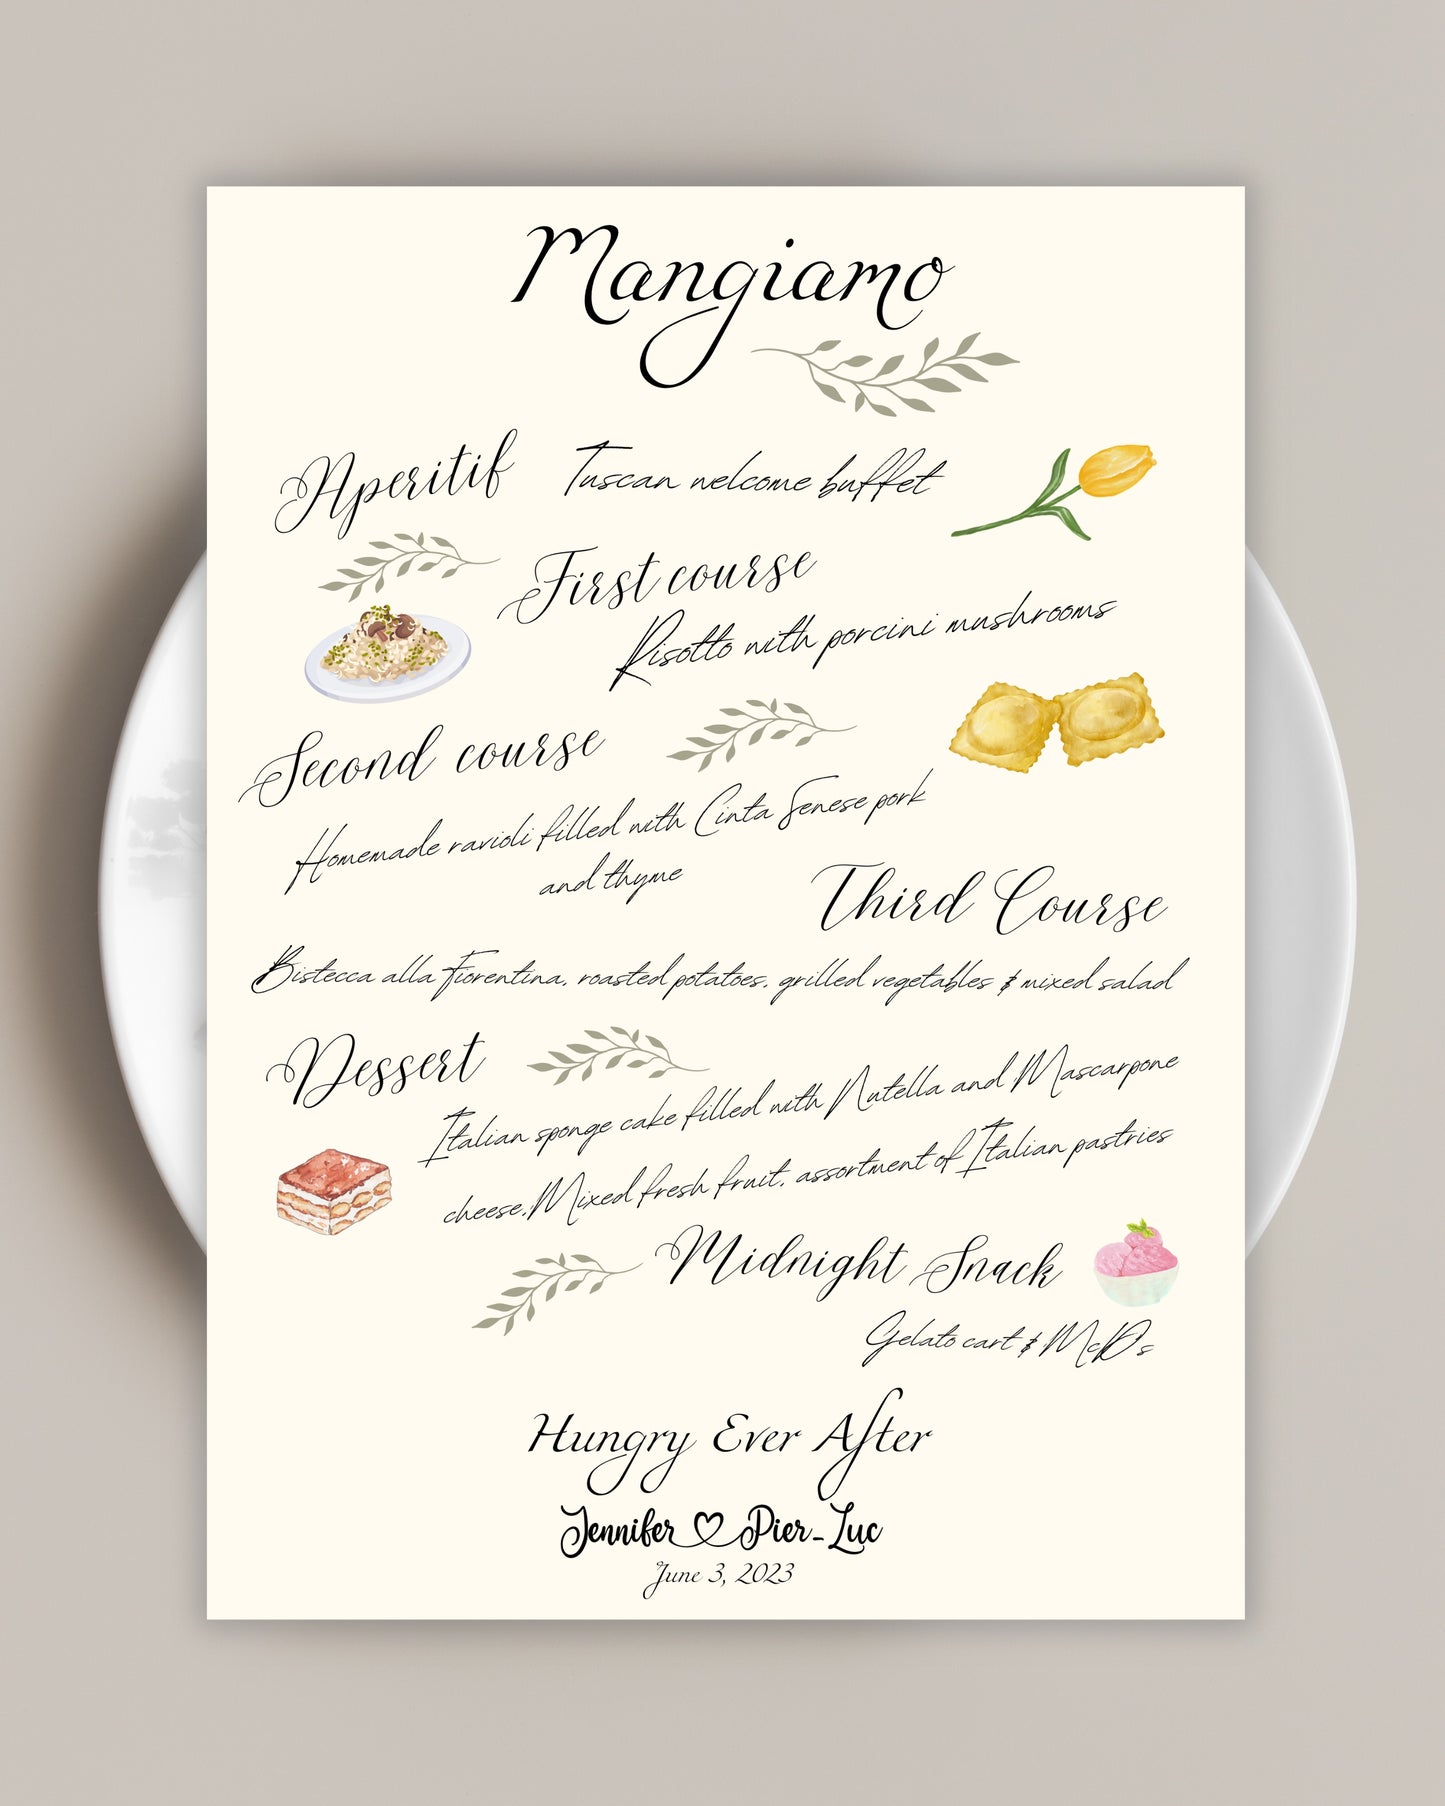 Mangiamo
Aperitif
Tuscan welcome buffet
First course
Risotto with porcini mushrooms
Second course
Homemade ravioli filled with Cinta Senese pork
and thyme
Third Course
Bistecca alla Fiorentina, roasted potatoes, grilled vegetables & mixed salad
Dessert
Italian sponge cake filled with Nutella and Mascarpone
cheese,Mixed fresh fruit, assortment of Italian pastries
Midnight Snack
Gelato cart & McD's
Hungry Ever After
Jennifer ♡ Pier-Luc
June 3, 2023